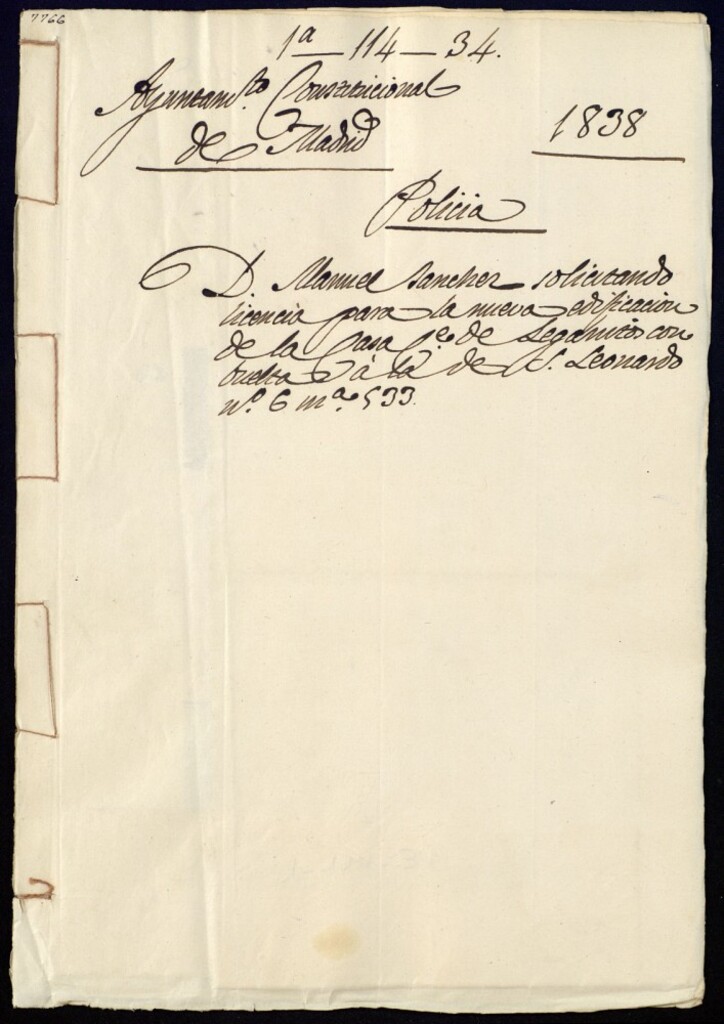 7766
1ª — 114 — 34.
Ayuntamto. Constitucional
de Madrid
1838
Policia
D. Manuel Sanchez solicitando
licencia para la nueva edificacion
de la Casa Ce. de Leganitos con
buelta á la de S. Leonardo
nº. 6 mª. 533.